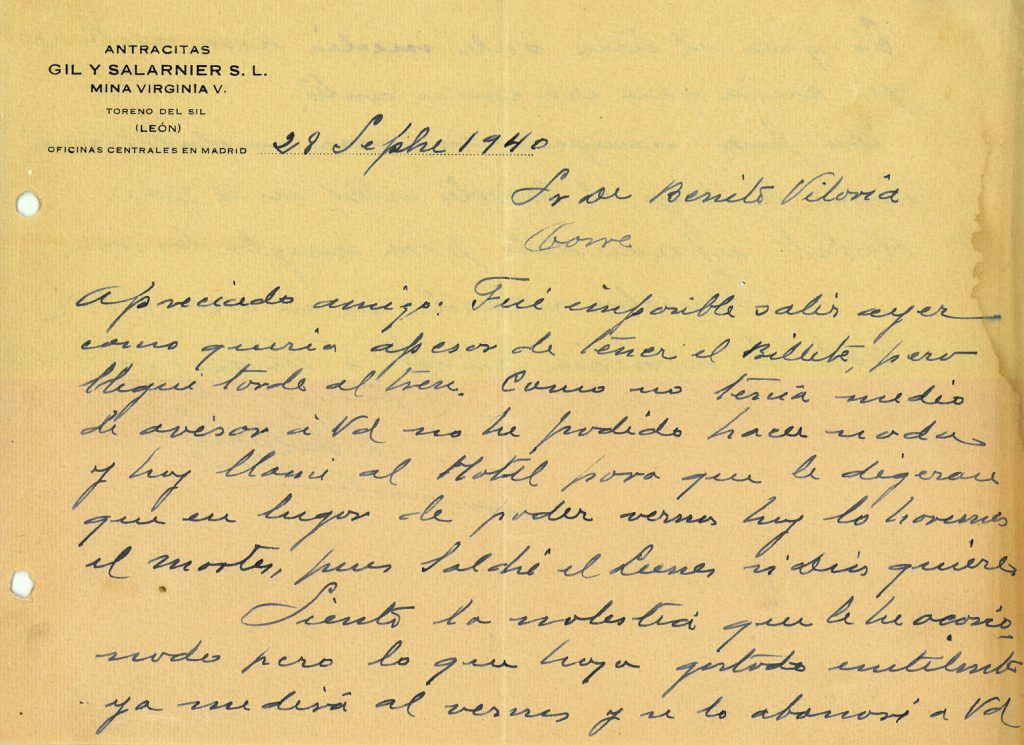 ANTRACITAS
GIL Y SALARNIER S. L.
MINA VIRGINIA V.
TORENO DEL SIL
(LEÓN)
OFICINAS CENTRALES EN MADRID 28 Sepbre 1940
Sr De Benito Viloria
Torre
Apreciado amigo: Fué imposible salir ayer
como queria apesar de tener el Billete, pero
llegué tarde al tren. Como no tenia medio
de avisar á Vd no he podido hacer nada
y hoy llamé al Hotel para que le digeran
que en lugar de poder vernos hoy lo haremos
el Martes, pues Saldré el Lunes si Dios quiere
Siento la molestia que le he acasio-
nado pero lo que haya gastado inutilmente
ya me dirá al vernos y se lo abonaré a Vd